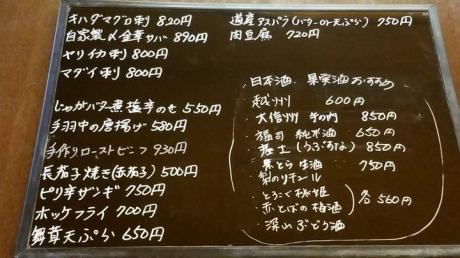 キハダマグロ刺 820円
自家製〆金華サバ 890円
ヤリイカ刺 800円
マダイ刺 800円
じゃがバター 塩辛のせ 550円
手羽中の唐揚げ 580円
手作りローストビーフ 930円
長茄子焼き(赤茄子) 500円
ピリ辛ザンギ 750円
ホッケフライ 700円
舞茸天ぷら 650円
道産アスパラ(バターor天ぷら) 750円
肉豆腐 720円
日本酒、果実酒おすすめ
越州 600円
・大信州 手の内 850円
・福司 純米酒 650円
850円
・秦とら 生酒 750円
・梨のリキュール
・とろこく桃姫
・赤とばの梅酒
・深山ぶどう酒
各560円